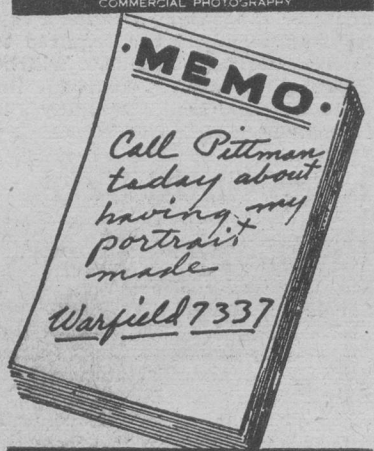 COMMERCIAL PHOTOGRAPHY
·MEMO·
Call Pittman
today about
having my
portrait
made
Warfield 7337